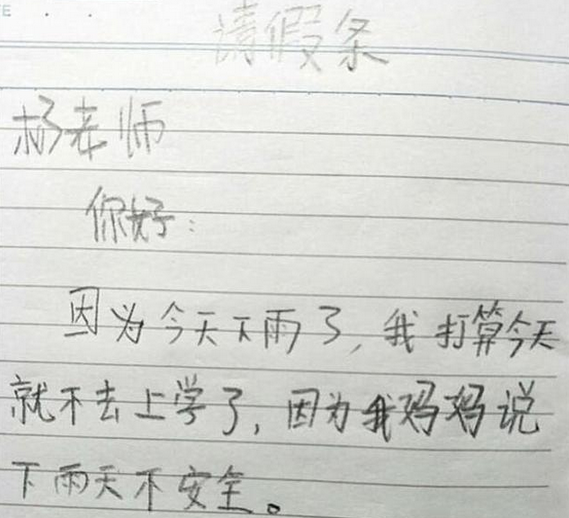 请假条
杨老师
你好:
因为今天下雨了,我打算今天
就不去上学了,因为我妈妈说
下雨天不安全。